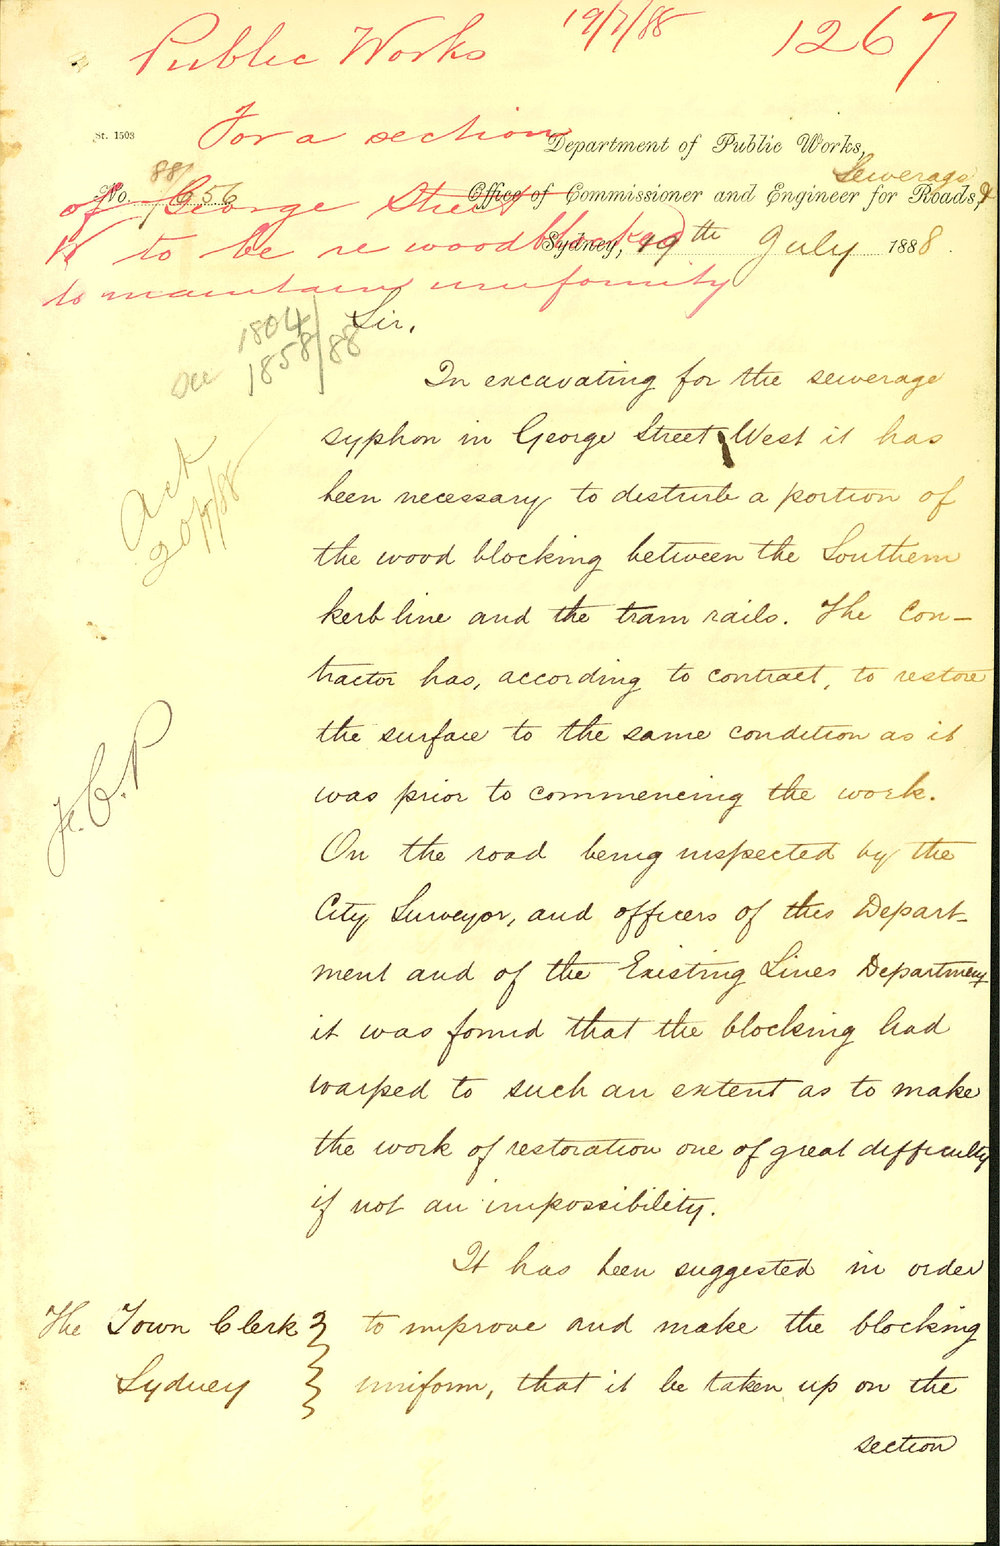 Public Works 19/7/88 1267
St. 1503
For a section
of George Street
W to be re woodblocked
to maintain uniformity
Department of Public Works,
Sewerage
No. 88/656 Office of Commissioner and Engineer for Roads, &
Sydney, 19th July 1888
Sir,
1804
1858/88
Ack
20/7/88
In excavating for the sewerage
syphon in George Street West it has
been necessary to disturb a portion of
the wood blocking between the Southern
kerb line and the tram rails. The con-
tractor has, according to contract, to restore
the surface to the same condition as it
was prior to commencing the work.
On the road being inspected by the
City Surveyor, and officers of this Depart-
ment and of the Existing Lines Department
it was found that the blocking had
warped to such an extent as to make
the work of restoration one of great difficulty
if not an impossibility.
It has been suggested in order
to improve and make the blocking
uniform, that it be taken up on the
section
The Town Clerk
Sydney